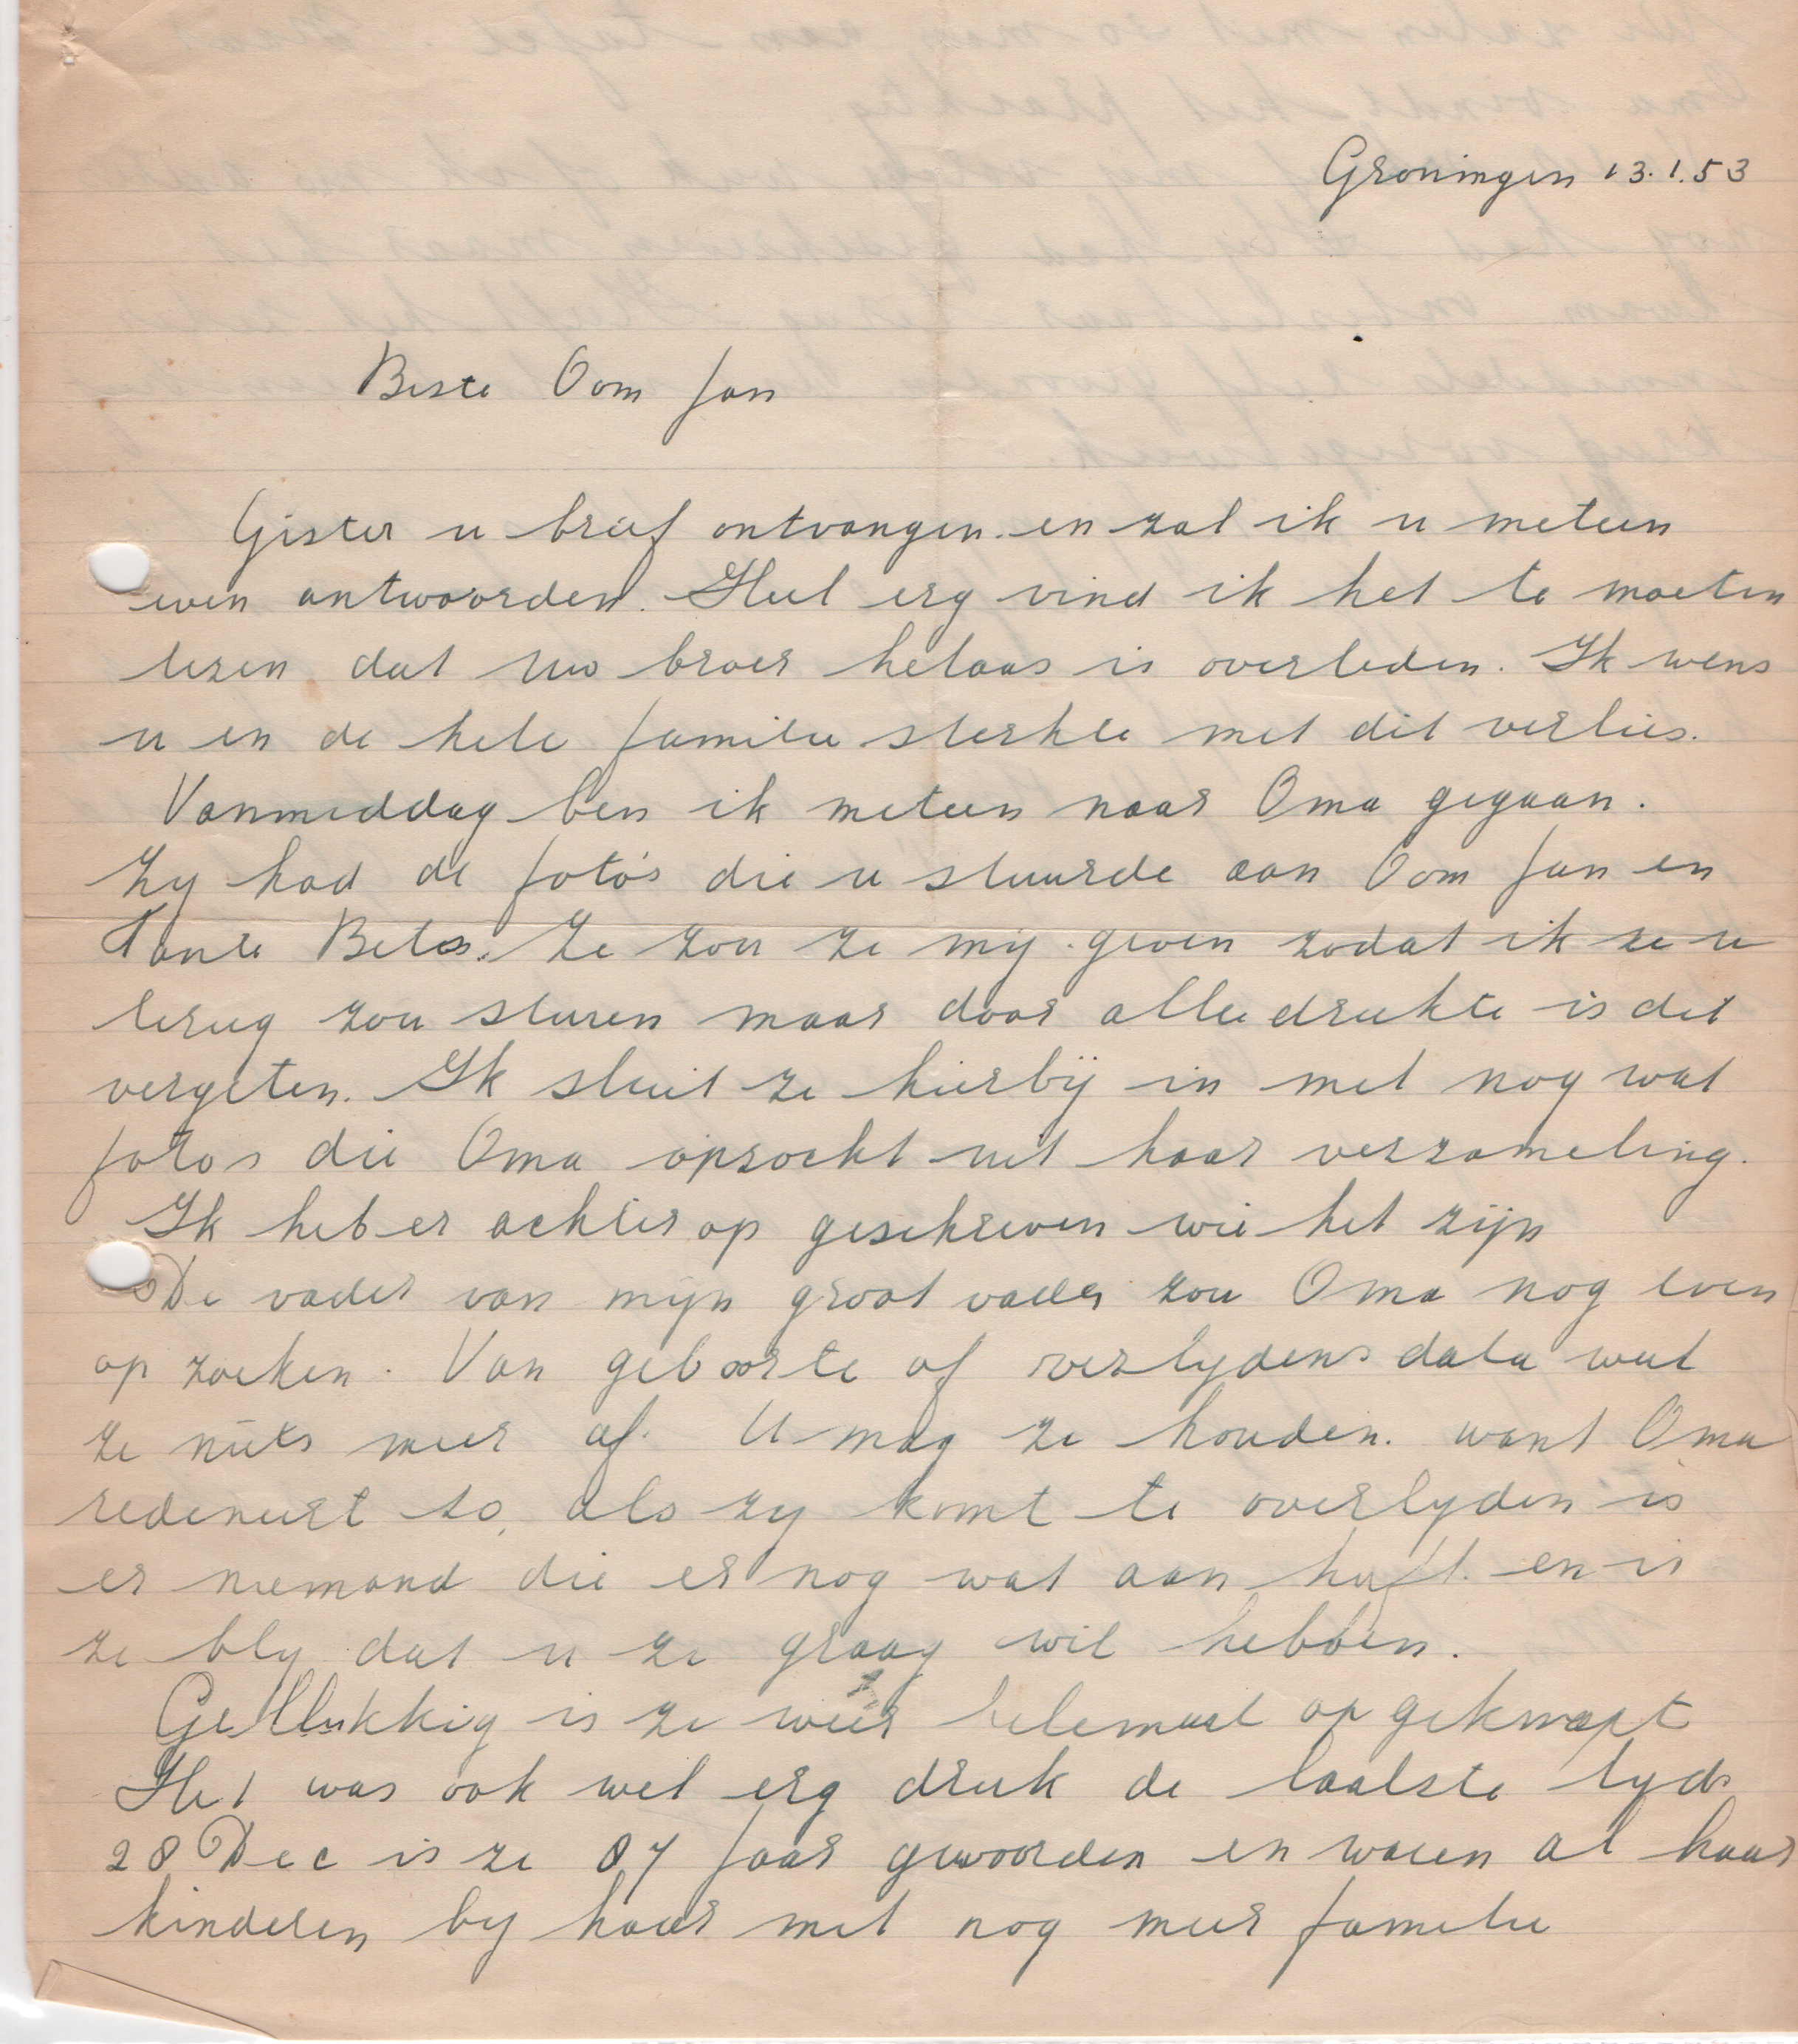 Groningen 13.1.53
Beste Oom Jan
Gister u brief ontvangen en zal ik u meteen
even antwoorden. Heel erg vind ik het te moeten
lezen dat uw broer helaas is overleden. Ik wens
u en de hele familie sterkte met dit verlies.
Vanmiddag ben ik meteen naar Oma gegaan.
Zy had de foto's die u stuurde aan Oom Jan en
Tante Betos. Ze zou ze mij geven zodat ik ze u
terug zou sturen maar door alle drukte is dit
vergeten. Ik sluit ze hierbij in met nog wat
fotos die Oma opzocht uit haar verzameling.
Ik heb er achter op geschreven wie het zijn
De vader van mijn groot vader zou Oma nog even
op zoeken. Van geboorte of overlydens data weet
ze niets meer af. U mag ze houden. want Oma
redeneert zo, als zy komt te overlyden is
er niemand die er nog wat aan heeft. en is
ze bly dat u ze graag wil hebben.
Gellukkig is ze weer helemaal op geknapt
Het was ook wel erg druk de laatste tyd.
28 Dec is ze 87 jaar geworden en waren al haar
kinderen by haar met nog meer familie